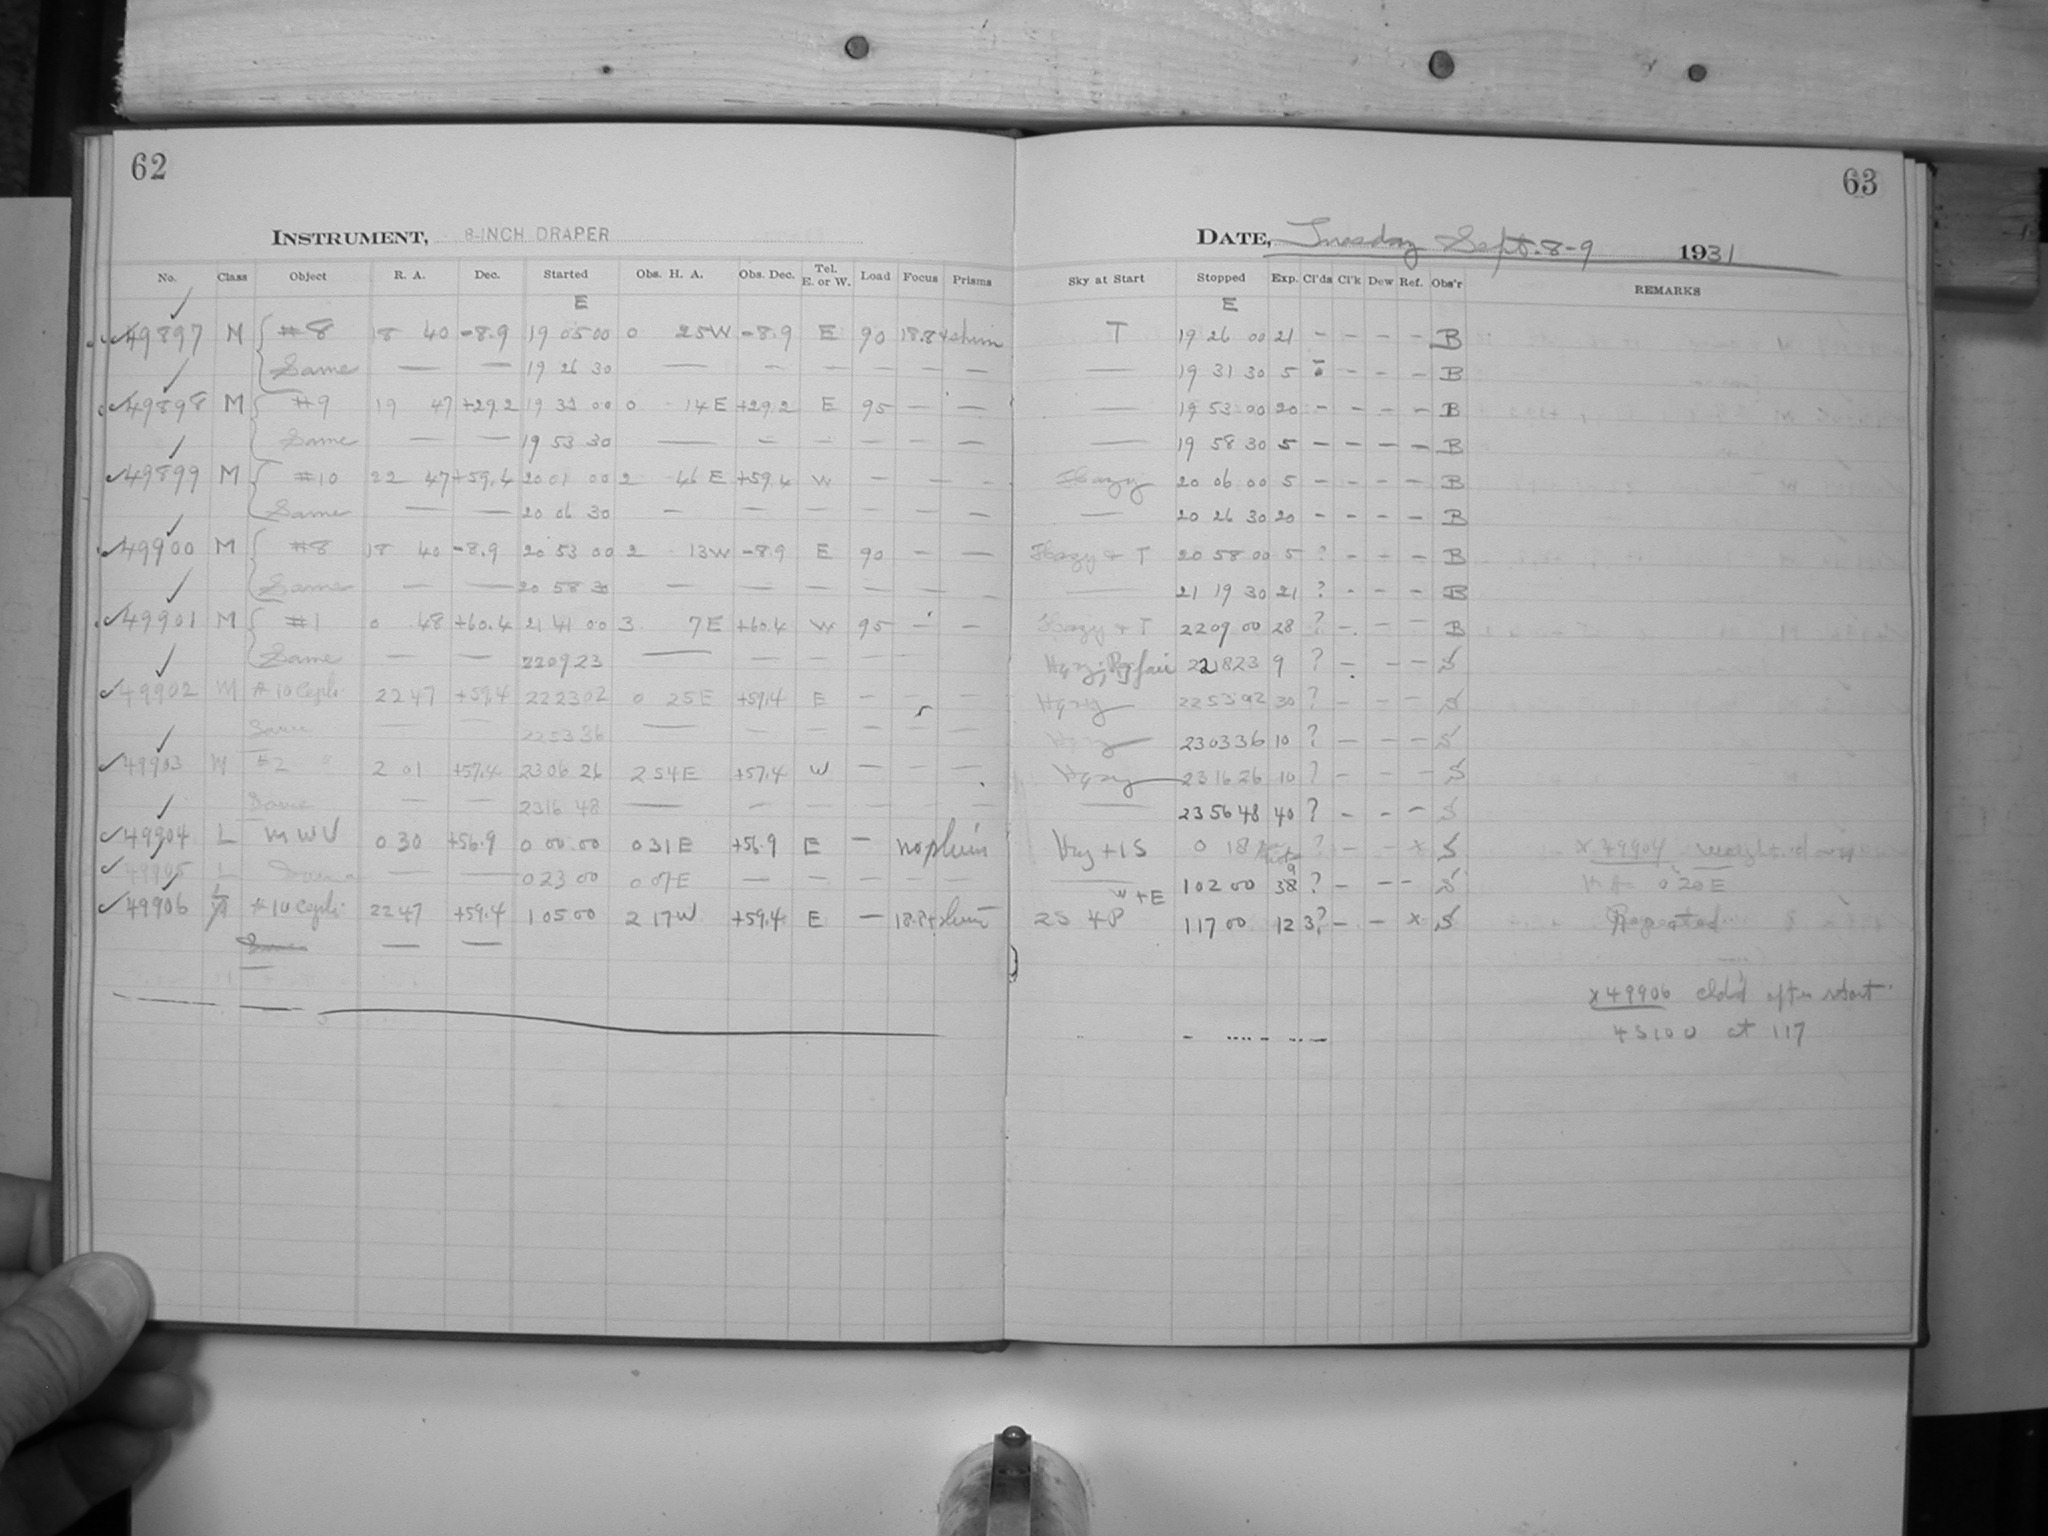 62
63
INSTRUMENT, 8-INCH DRAPER
DATE, Tuesday Sept. 8-9 1931
No. Class Object R. A. Dec. Started Obs. H. A. Obs. Dec. Tel. E. or W. Load Focus Prisms Sky at Start Stopped Exp. Cl'ds Cl'k Dew Ref. Obs'r REMARKS
E E
49897 M #8 18 40 -8.9 19 05 00 0 25W -8.9 E 90 18.8 T 19 26 00 21 - - - - B
Same — — 19 26 30 — - - - - - — 19 31 30 5 - - - B
49898 M #9 19 47 +29.2 19 33 00 0 14E +29.2 E 95 - - — 19 53 00 20 - - - - B
Same — — 19 53 30 — - - - - - — 19 58 30 5 - - - - B
49899 M #10 22 47 +59.4 20 01 00 2 46 E +59.4 W - - - Hazy 20 06 00 5 - - - - B
Same — — 20 06 30 - - - - - - — 20 26 30 20 - - - - B
49900 M #8 18 40 -8.9 20 53 00 2 13W -8.9 E 90 - - Hazy + T 20 58 00 5 ? - - - B
Same — — 20 58 30 - - - - - - — 21 19 30 21 ? - - - B
49901 M #1 0 48 +60.4 21 41 00 3 7E +60.4 W 95 - - Hazy + T 22 09 00 28 ? - - - B
Same — — 22 09 23 — Hazy; fair 22 18 23 9 ? - - - S
49902 M #10 Ceph. 22 47 +59.4 22 23 02 0 25E +59.4 E - - - Hazy 30 ? - - - S
Same — — 22 53 36 — - - - - - Hazy 23 03 36 10 ? - - - S
49903 M #2 " 2 01 +57.4 23 06 26 2 54E +57.4 W - - - Hazy 23 16 26 10 ? - - - S
Same — — 23 16 48 — - - - - - — 23 56 48 40 ? - - - S
49904 L M W V 0 30 +56.9 0 00 00 0 31E +56.9 E - no Hzy + 1 S 0 18 ? - - x S x 49904 weight
49905 L — — 0 23 00 0 07E - - - - - — W + E 1 02 00 ? - - - S 0 20 E
49906 #10 Ceph. 22 47 +59.4 1 05 00 2 17W +59.4 E - 18.8 2 S + P 1 17 00 12 3? - - x S Repeated
Same — —
x 49906 cld'd after start
at 117